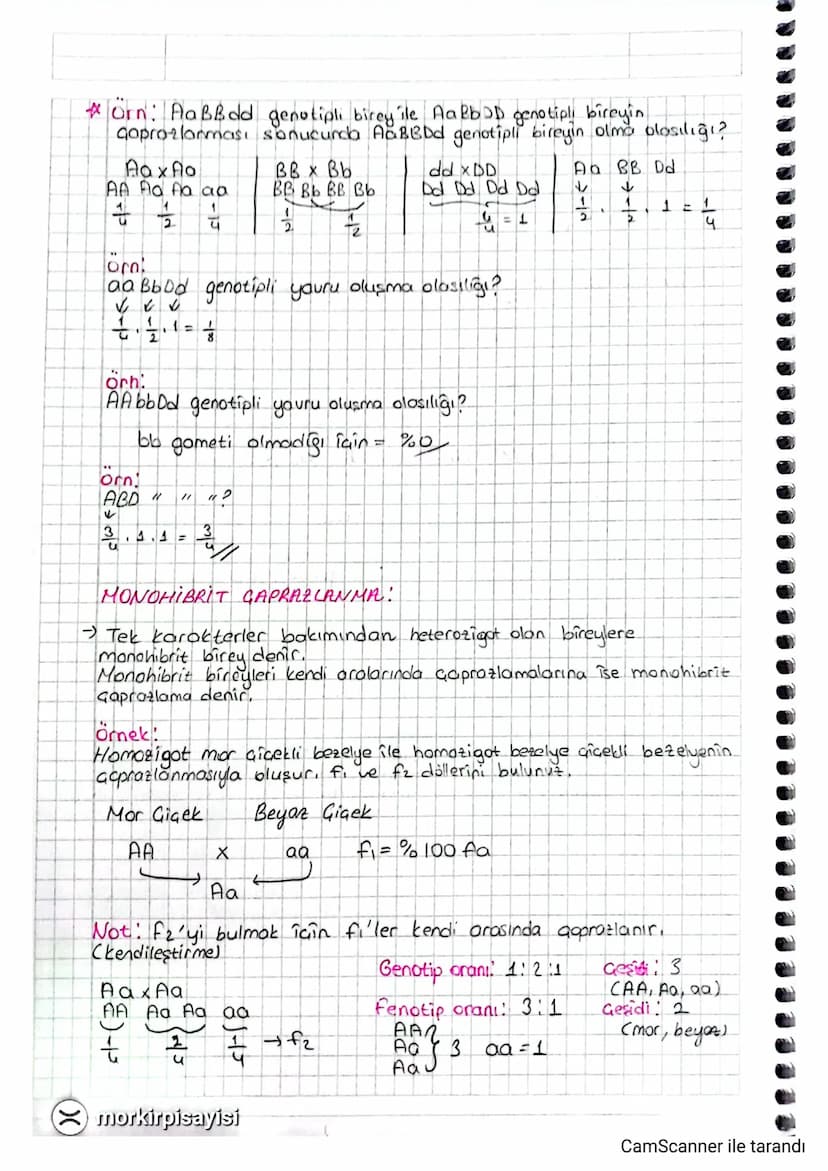 * Örn: AaBBdd genotipli birey ile AaBbDD genotipli bireyin
çaprazlanması sonucunda AaBBDd genotipli bireyin olma olasılığı?
Aa x Aa
AA Aa Aa aa
1/4 1/2 1/4
BB x Bb
BB Bb BB Bb
1/2 1/2
dd x DD
Dd Dd Dd Dd
4/4 = 1
Aa BB Dd
↓ ↓
1/2 . 1/2 . 1 = 1/4
Örn:
aa BbDd genotipli yavru oluşma olasılığı?
↓ ↓ ↓
1/4 . 1/2 . 1 = 1/8
Örn:
AAbbDd genotipli yavru oluşma olasılığı?
bb gameti olmadığı için = %0
Örn:
ABD " " "?
↓
3/4 . 1 . 1 = 3/4 //
MONOHİBRİT ÇAPRAZLANMA:
→ Tek karakterler bakımından heterozigot olan bireylere
monohibrit birey denir.
Monohibrit bireyleri kendi aralarında çaprazlamalarına ise monohibrit
çaprazlama denir.
Örnek:
Homozigot mor çiçekli bezelye ile homozigot bezelye çiçekli bezelyenin
çaprazlanmasıyla oluşur. f1 ve f2 döllerini bulunuz.
Mor Çiçek Beyaz Çiçek
AA x aa f1 = %100 Aa
Aa
Not: F2'yi bulmak için f1'ler kendi arasında çaprazlanır.
(kendileştirme)
Aa x Aa
AA Aa Aa aa
1/4 2/4 1/4 → f2
Genotip oranı: 1:2:1 Çeşidi: 3
(AA, Aa, aa)
Fenotip oranı: 3:1 Çeşidi: 2
(mor, beyaz)
AA
Aa } 3 aa = 1
Aa
morkirpisayisi
CamScanner ile tarandı